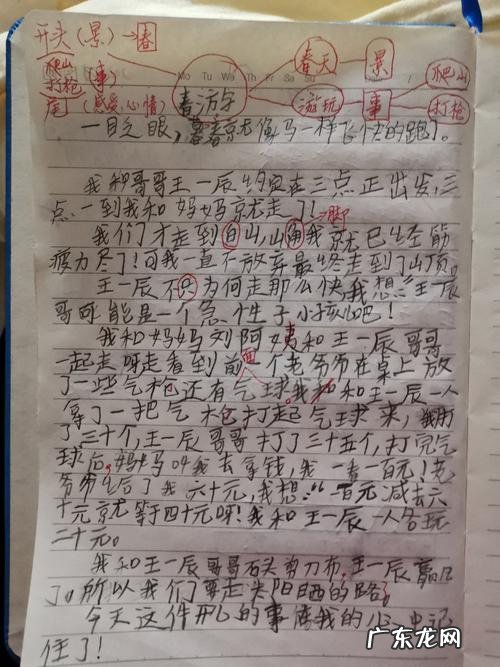 开头(景)→春
爬山 打枪 (事)
尾 (感受、心情)
Mo Tu We Th Fr Sa Su
春游 春天 景
游玩 事 爬山 打枪
一目之眼,春就像马一样飞快的跑了。
我和哥哥王一辰约定在三点正出发,三
点一到我和妈妈就走了!
脚
我们才走到白山,山角我就已经筋
疲力尽了!可我一直不放弃最终走到了山顶。
王一辰不只为何走那么快,我想:"王一辰
哥可能是一个急性子小孩儿吧!
我和妈妈刘阿姨和王一辰哥哥
一起走呀走看到前面一个老爷爷在桌上放
了一些气枪还有气球。我和王一辰一人
拿了一把气枪打起气球来,我打
了三十个,王一辰哥哥打了三十五个,打完气
球后,妈妈叫我去拿钱,我一看一百元!老
爷爷生后了我六十元,我想:"一百元减去六
十元就等于四十元呀!我和王一辰一人各玩
二十元。
我和王一辰哥哥石头剪刀布,王一辰赢
了。所以我们要走太阳晒的路。
今天这件开心的事情我的心中记
住了!
广东龙网